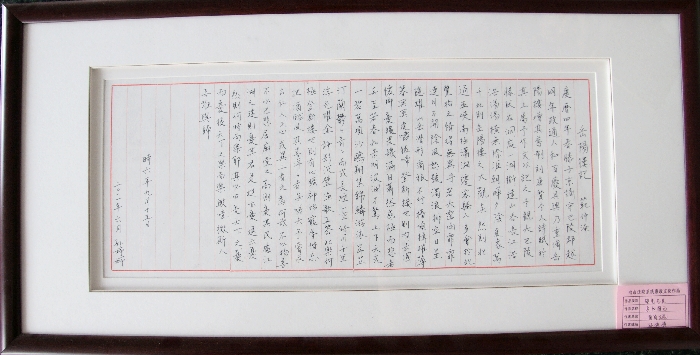 岳陽樓記 范仲淹
慶曆四年春滕子京謫守巴陵郡越
明年政通人和百廢具興乃重修岳
陽樓增其舊制刻唐賢今人詩賦於
其上屬予作文以記之予觀夫巴陵
勝狀在洞庭一湖銜遠山吞長江浩
浩湯湯橫無際涯朝暉夕陰氣象萬
千此則岳陽樓之大觀也然則北
通巫峽南極瀟湘遷客騷人多會於此
覽物之情得無異乎若夫霪雨霏霏
連月不開陰風怒號濁浪排空日星
隱耀山岳潛形商旅不行檣傾楫摧薄
暮冥冥虎嘯猿啼登斯樓也則有去國
懷鄉憂讒畏譏滿目蕭然感極而悲者
矣至若春和景明波瀾不驚上下天光
一碧萬頃沙鷗翔集錦鱗游泳岸芷
汀蘭郁郁青青而或長煙一空皓月千里
浮光耀金靜影沉璧漁歌互答此樂何
極登斯樓也則有心曠神怡寵辱皆忘
把酒臨風其喜洋洋者矣嗟夫予嘗求
古仁人之心或異二者之為何哉不以物喜
不以己悲居廟堂之高則憂其民處江
湖之遠則憂其君是進亦憂退亦憂
然則何時而樂耶其必曰先天下之憂
而憂後天下之樂而樂歟噫微斯人
吾誰與歸
時六年九月十五日